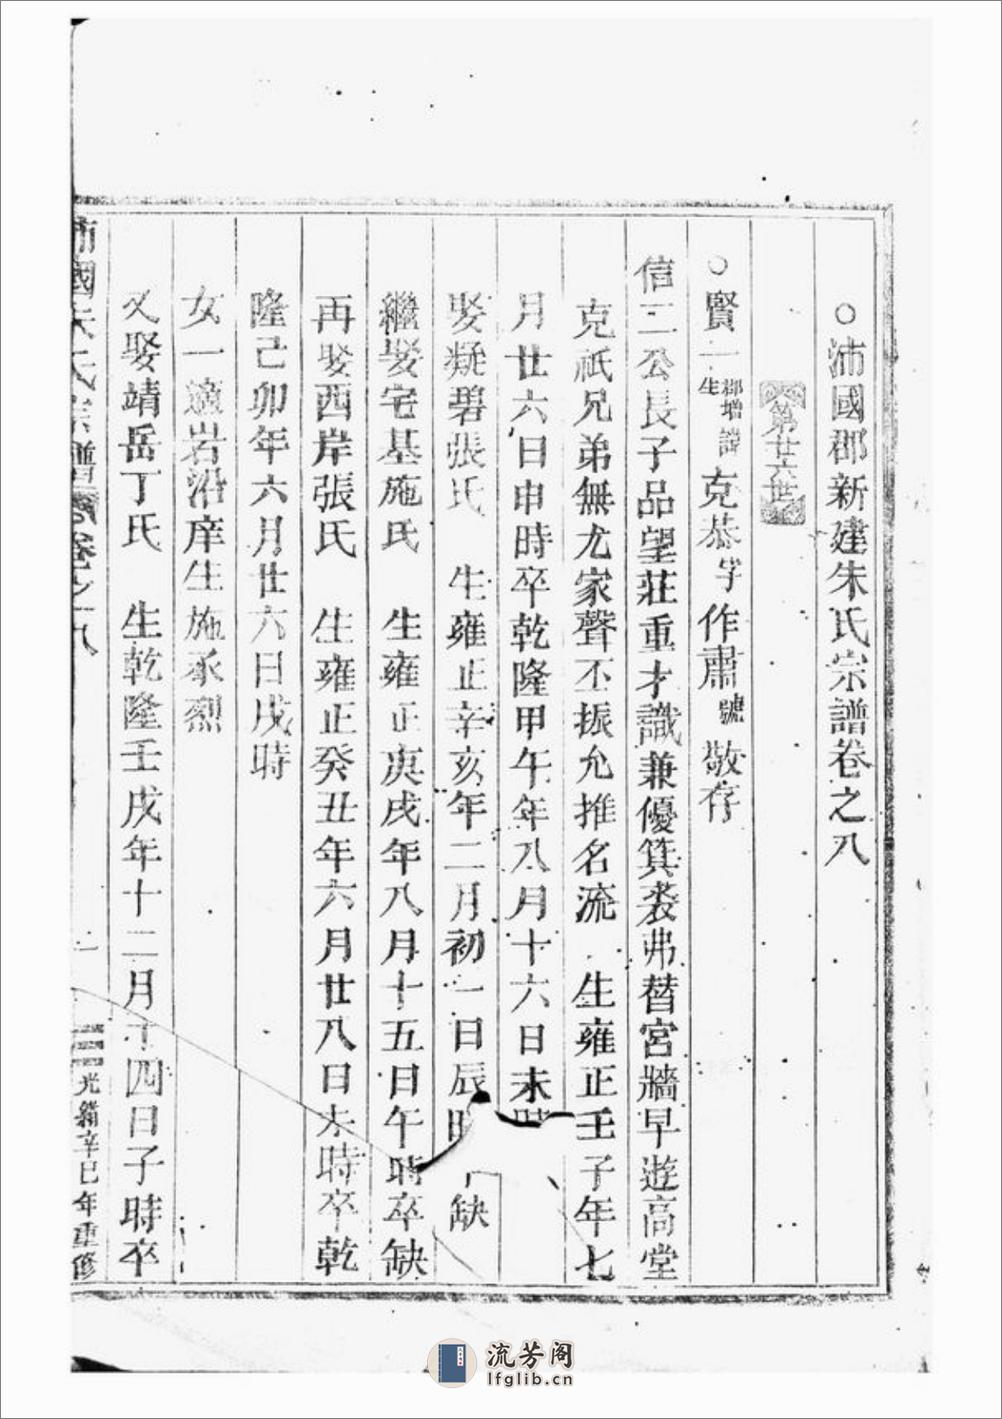 ○沛國郡新建朱氏宗譜卷之八
第廿六世
○賢一郡增生諱克恭字作肅號敬存
信二公長子品望莊重才識兼優箕裘弗替宮牆早遊高堂
克祇兄弟無尤家聲丕振允推名流 生雍正壬子年七
月廿六日申時卒乾隆甲午年八月十六日未時
娶凝碧張氏 生雍正辛亥年二月初一日辰時 缺
繼娶宅基施氏 生雍正庚戌年八月十五日午時卒缺
再娶西岸張氏 生雍正癸丑年六月廿八日未時卒乾
隆己卯年六月廿六日戌時
女一適岩沿庠生施承烈
又娶靖岳丁氏 生乾隆壬戌年十二月十四日子時卒
沛國朱氏宗譜 卷之八 一 光緒辛巳年重修
流芳阁
lfglib.cn